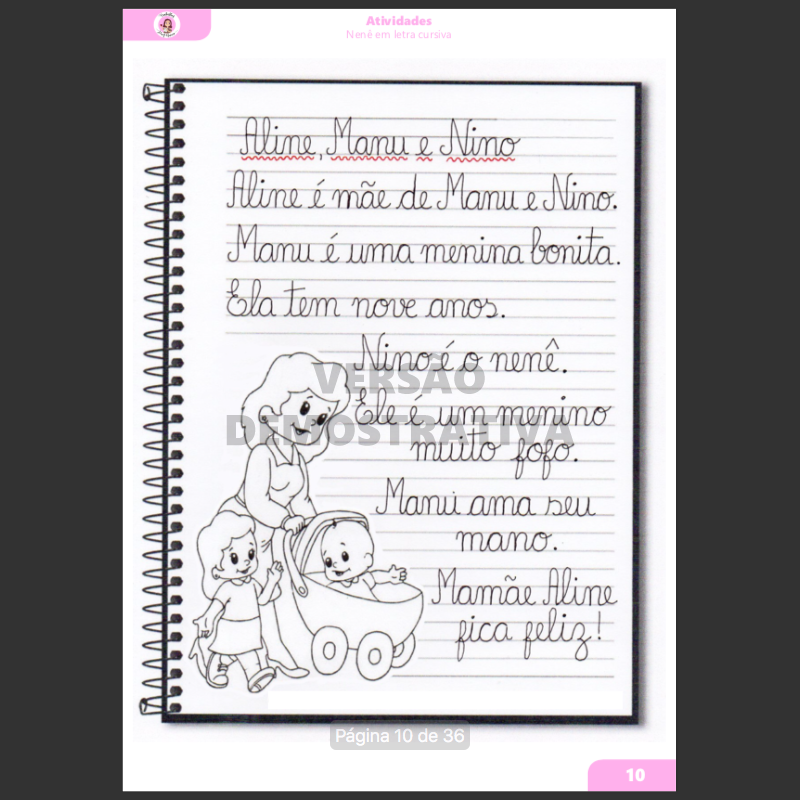 Atividades
Nenê em letra cursiva
Aline, Manu e Nino
Aline é mãe de Manu e Nino.
Manu é uma menina bonita.
Ela tem nove anos.
Nino é o nenê.
VERSÃO
Ele é um menino
DEMOSTRATIVA
muito fofo.
Manu ama seu
mano.
Mamãe Aline
fica feliz!
Página 10 de 36
10